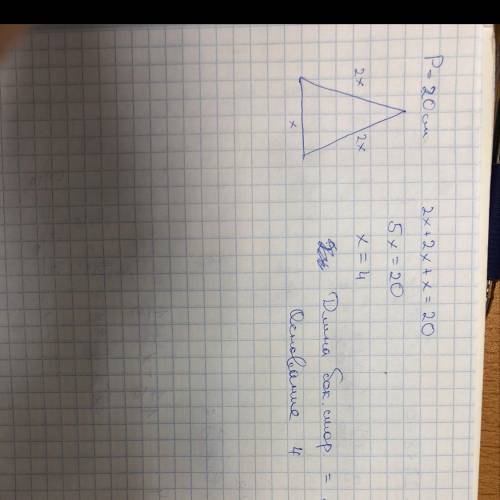 P = 20 см
2x + 2x + x = 20
5x = 20
x = 4
2x
2x
x
Длина бок. стор. =
Основание 4